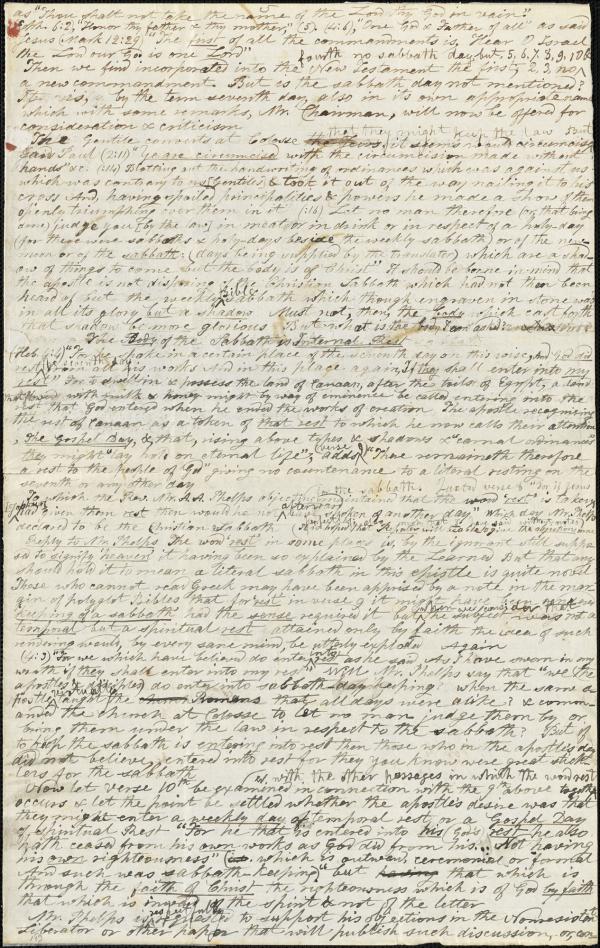 as "Thou shalt not take the name of the Lord thy God in vain"
6:2, "Honor thy father & thy mother," (5) (4:6), "One God & Father of all" as said
Jesus (Mark 12:29) "The first of all the commandments is, Hear O Israel
the Lord our God is one Lord"
fourth no sabbath day but, 5, 6, 7, 8, 9, 10
Then we find incorporated into the New Testament the first, 2, 3, no
a new commandment. But is the sabbath day not mentioned?
It is, & by the term seventh day, also in its own appropriate name
which with some remarks, Mr. Chairman, will now be offered for
consideration & criticism
that they might keep the law but
The Gentile converts at Colosse it seems would circumcise
said Paul (2:11) "Ye are circumcised with the circumcision made without
hands" &c. (:14) Blotting out the handwriting of ordinances which was against us
which was contrary to us gentiles & took it out of the way nailing it to his
cross And, having spoiled principalities & powers he made a show of them
openly triumphing over them in it (:16) Let no man therefore (on that being
done) judge you [by the law] in meat, or in drink or in respect of a holy-day
(for there were sabbaths & holy-days beside the weekly sabbath) or of the new
moon or of the sabbath: (days being supplied by the translator) which are a shad-
ow of things to come but the body is of Christ" It should be borne in mind that
the apostle is not Christian Sabbath which had not then been
Bible
heard of but the weekly Sabbath which though engraven in stone was
in all its glory but a shadow Must not, then, the body which cast forth
that shadow be more glorious But what is the body
The Body of the Sabbath is Internal Rest
spoke in a certain place of the seventh day on this wise, And God did
rest from all his works And in this place again, If they shall enter into my
rest" For to dwell in & possess the land of Canaan, after the toils of Egypt, a land
that flowed with milk & honey might by way of eminence be called entering into the
rest that God entered when he ended the works of creation The apostle recognizing
the rest of Canaan as a token of that rest to which he now calls their attention
The Gospel Day, & that, rising above types & shadows & "carnal ordinances"
they might "lay hold on eternal life"; adds "There remaineth therefore
a rest to the people of God" giving no countenance to a literal resting on the
seventh or any other day
To which the Rev. Mr. A. A. Phelps objecting maintained that the word rest is taken
given them rest then would he not afterward have spoken of another day" which day Mr. Phelps
declared to be the Christian Sabbath
Reply to Mr. Phelps The word rest in some places is, by the ignorant still suppo-
sed to signify heaven it having been so explained by the Learned But that any
should hold it to mean a literal sabbath in this epistle is quite novel
Those who cannot read Greek may have been apprised by a note in the mar-
gin of polyglot Bibles that for rest in verse 9
keeping of a sabbath had the sense required it but when we consider that the subject was not a
temporal but a spiritual rest attained only by faith the idea of such
rendering would, by every sane mind, be utterly exploded Again
(4:3) "For we which have believed do enter into rest as he said As I have sworn in my
wrath if they shall enter into my rest" Will Mr. Phelps say that "we the
apostles & disciples do enter into sabbath-day keeping? When the same a-
postle virtually taught the Romans that all days were alike? & comm-
anded the church at Colosse to let no man judge them by or
bring them under the law in respect to the sabbath? But if
to keep the sabbath is entering into rest then those who in the apostle's day
did not believe, entered into rest for they you know were great stick-
lers for the sabbath
Now let verse 10th be examined in connection with the 9th above together
with the other passages in which the word rest
occurs & let the point be settled whether the apostle's desire was that
they might enter a weekly day of temporal rest or a Gospel Day
of spiritual Rest "For he that is entered into his God's rest he also
hath ceased from his own works as God did from his." Not having
his own righteousness" which is outward, ceremonial or formal
And such was sabbath-keeping "but that which is
through the faith of Christ the righteousness which is of God by faith
that which is inward of the spirit & not of the letter
Mr. Phelps is respectfully requested to support his objections in the Nonresistant
Liberator or other paper that will publish such discussion, or, con